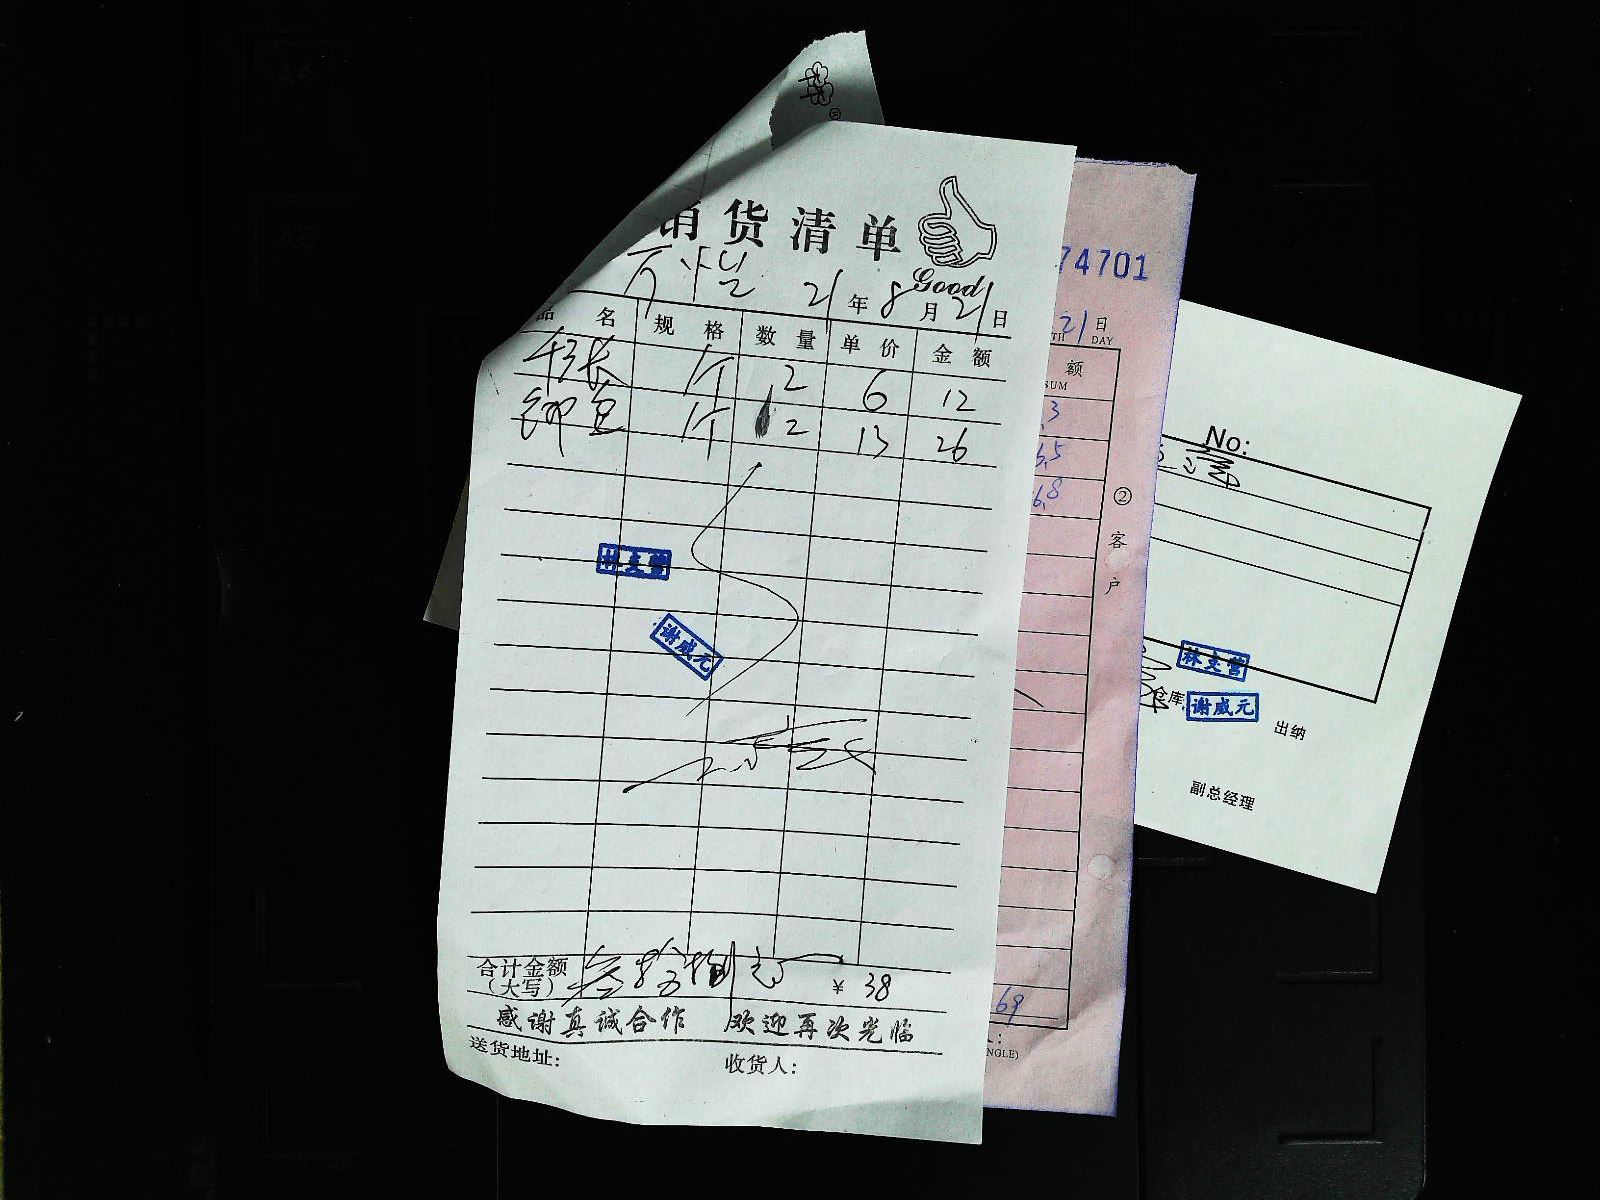 货清单
Good
21年8月21日
品名 规格 数量 单价 金额
个 2 6 12
个 2 13 26
林支营
谢威元
合计金额
(大写) 叁拾捌元 ¥ 38
感谢真诚合作 欢迎再次光临
送货地址: 收货人:
74701
21日
DAY
额
SUM
②客户
69
NGLE)
No:
林支营
仓库 谢威元 出纳
副总经理